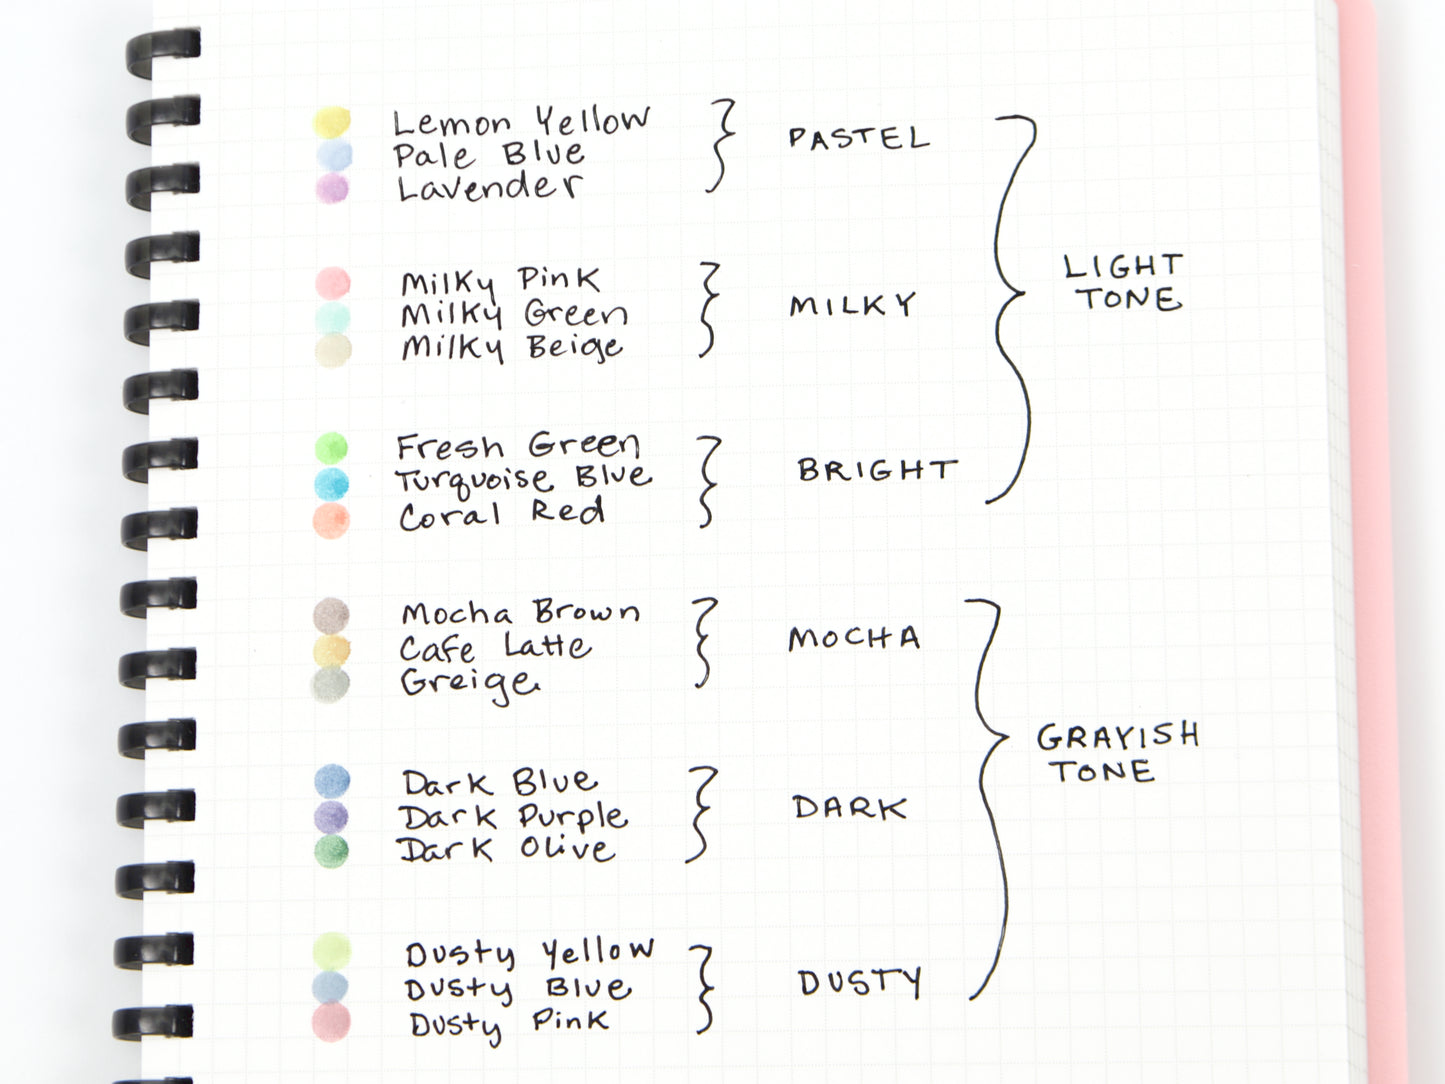 Lemon Yellow
Pale Blue
Lavender
PASTEL
Milky Pink
Milky Green
Milky Beige
MILKY
Fresh Green
Turquoise Blue
Coral Red
BRIGHT
LIGHT
TONE
Mocha Brown
Cafe Latte
Greige
MOCHA
Dark Blue
Dark Purple
Dark Olive
DARK
Dusty Yellow
Dusty Blue
Dusty Pink
DUSTY
GRAYISH
TONE